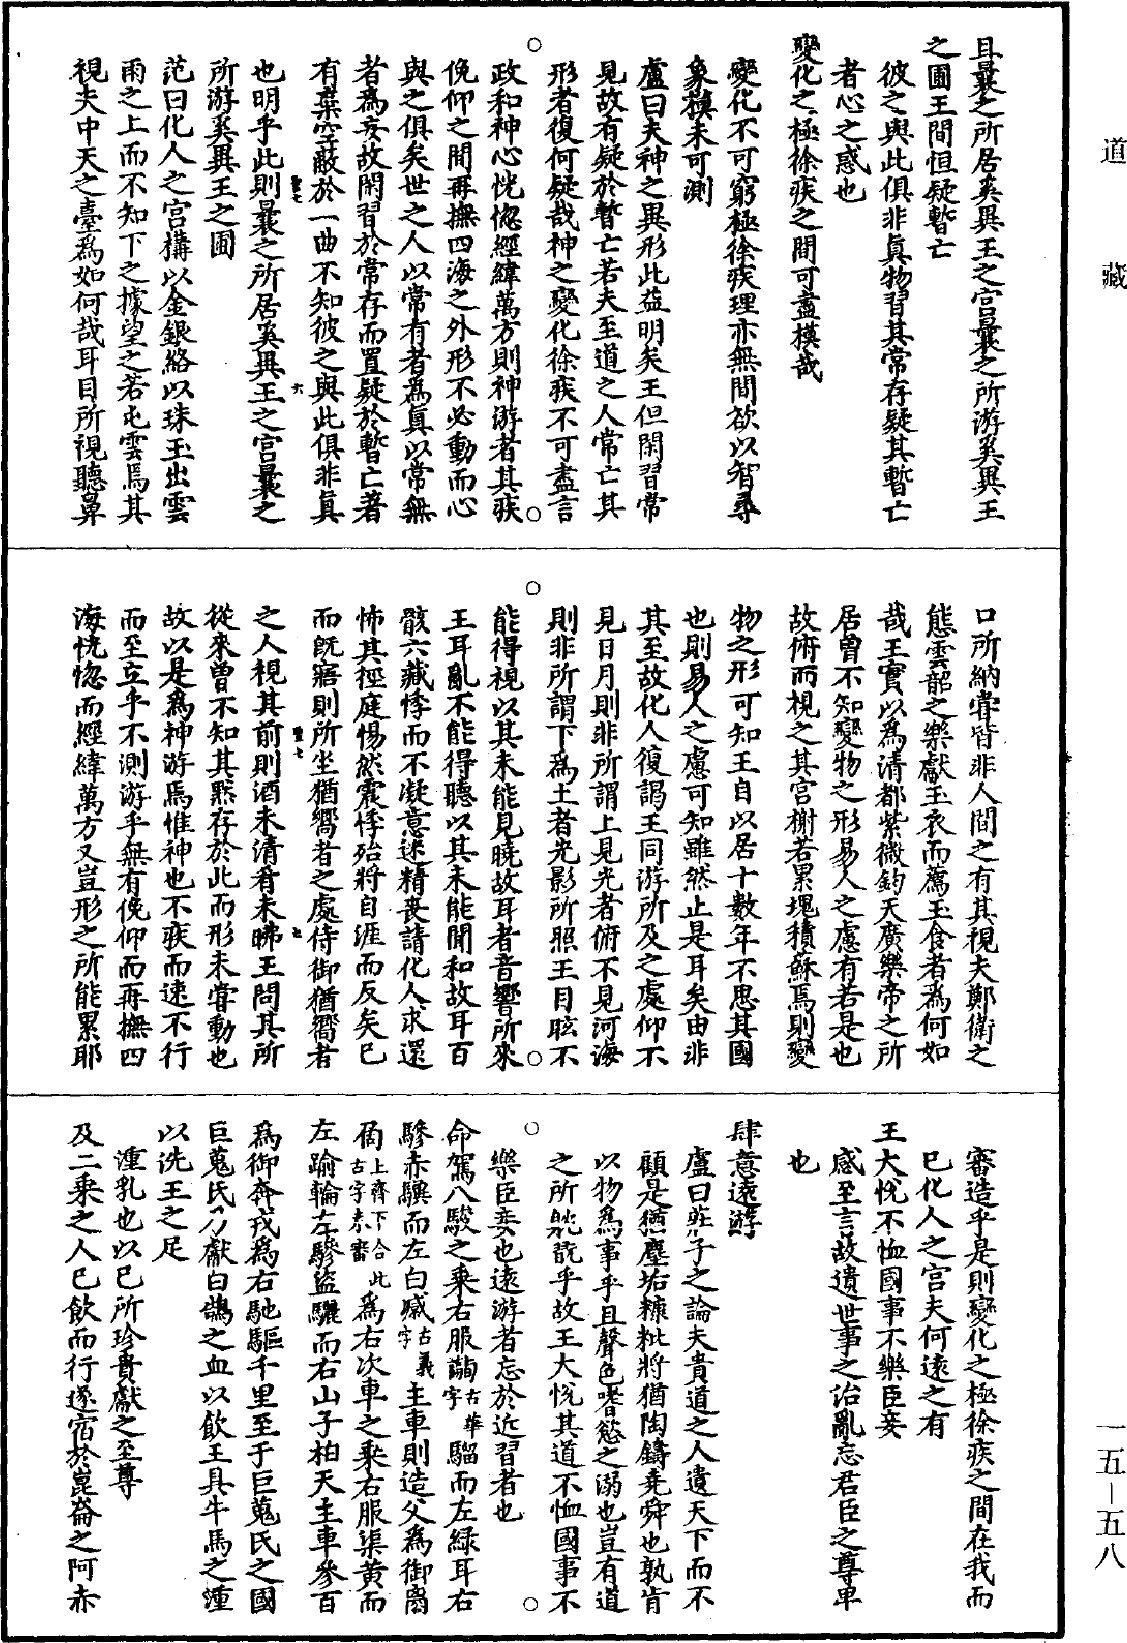 道藏
一五—五八
且曩之所居奚異王之宮曩之所游奚異王
之圃王間恒疑暫亡
彼之與此俱非眞物習其常存疑其暫亡
者心之惑也
變化之極徐疾之間可盡模哉
變化不可窮極徐疾理亦無間欲以智尋
象模未可測
盧曰夫神之異形此益明矣王但閑習常
見故有疑於暫亡若夫至道之人常亡其
形者復何疑哉神之變化徐疾不可盡言
政和神心恍惚經緯萬方則神游者其疾
俛仰之間再撫四海之外形不必動而心
與之俱矣世之人以常有者爲眞以常無
者爲妄故閑習於常存而置疑於暫亡著
有棄空蔽於一曲不知彼之與此俱非眞
也明乎此則曩之所居奚異王之宮曩之
所游奚異王之圃
范曰化人之宮構以金銀絡以珠玉出雲
雨之上而不知下之據望之若屯雲焉其
視夫中天之臺爲如何哉耳目所視聽鼻
口所納嘗皆非人間之有其視夫鄭衛之
態雲韶之樂獻玉衣而薦玉食者爲何如
哉王實以爲清都紫微鈞天廣樂帝之所
居曾不知變物之形易人之慮有若是也
故俯而視之其宮榭若累塊積蘇焉則變
物之形可知王自以居十數年不思其國
也則易人之慮可知雖然止是耳矣由非
其至故化人復謁王同游所及之處仰不
見日月則非所謂上見光者俯不見河海
則非所謂下爲土者光影所照王目眩不
能得視以其未能見曉故耳者音響所來
王耳亂不能得聽以其未能聞和故耳百
骸六藏悸而不凝意迷精喪請化人求還
怖其徑庭惕然震悸殆將自涯而反矣已
而旣寤則所坐猶嚮者之處侍御猶嚮者
之人視其前則酒未清肴未昲王問其所
從來曾不知其黙存於此而形未嘗動也
故以是爲神游焉惟神也不疾而速不行
而至立乎不測游乎無有俛仰而再撫四
海恍惚而經緯萬方又豈形之所能累耶
審造乎是則變化之極徐疾之間在我而
已化人之宮夫何遠之有
王大悅不恤國事不樂臣妾
感至言故遺世事之治亂忘君臣之尊卑
也
肆意遠遊
盧曰莊子之論夫貴道之人遺天下而不
顧是猶塵垢糠粃將猶陶鑄堯舜也孰肯
以物爲事乎且聲色嗜慾之溺也豈有道
之所躭翫乎故王大悅其道不恤國事不
樂臣妾也遠游者忘於近習者也
命駕八駿之乘右服𦽊古華字騮而左緑耳右
驂赤驥而左白㸅古義字主車則造父爲御𦒎
𠼠上齊下合此古字未審爲右次車之乘右服渠黃而
左踰輪左驂盜驪而右山子柏天主車參百
爲御奔戎爲右馳驅千里至于巨蒐氏之國
巨蒐氏乃獻白鵠之血以飲王具牛馬之湩
以洗王之足
湩乳也以已所珍貴獻之至尊
及二乘之人已飲而行遂宿於崑崙之阿赤